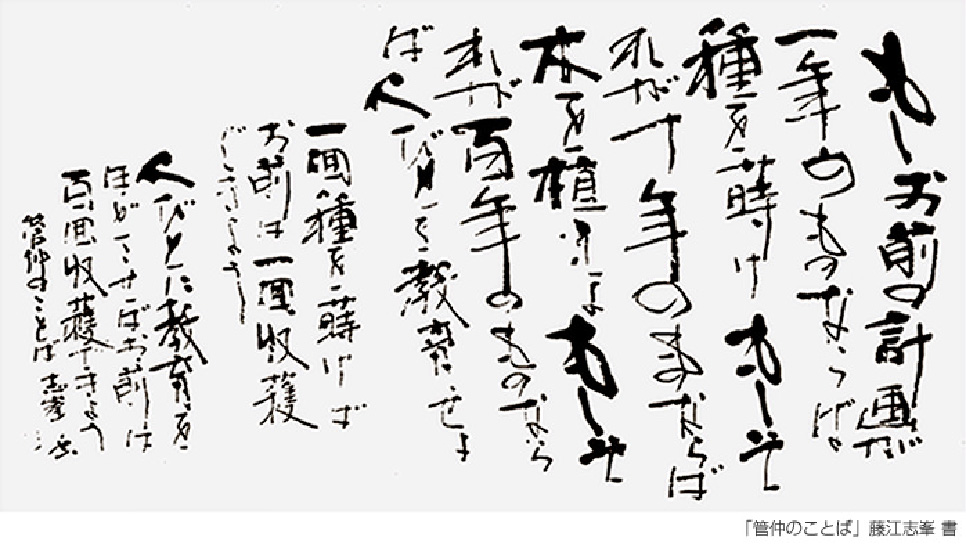 もしお前の計画が
一年のものならば
種を蒔け もしそ
れが十年のものならば
木を植えよ もしそ
れが百年のものなら
ば人びとを教育せよ
一回種を蒔けば
お前は一回収穫
できよう
人びとに教育を
ほどこせばお前は
百回収穫できよう
管仲のことば 志峯
「管仲のことば」藤江志峯 書